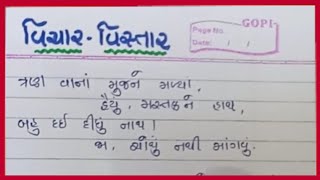 GOPI
Page No.
Date: / /
વિચાર-વિસ્તાર
ત્રણ વાનાં મુજને મળ્યાં,
હૈયું, મસ્તક ને હાથ,
બહુ દઈ દીધું નાથ!
જા, ચોથું નથી માંગવું.